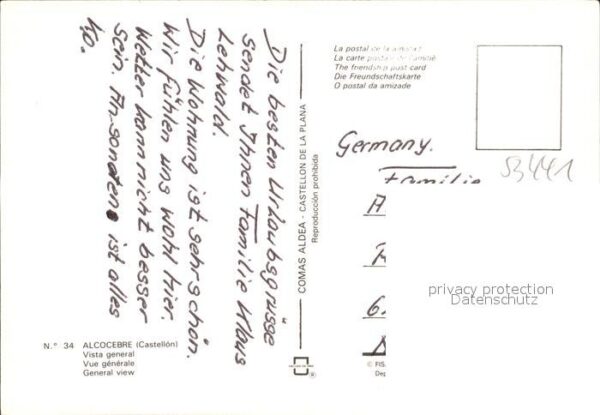 Die besten Urlaubsgrüsse
sendet Ihnen Familie Klaus
Lehwald.
Die Wohnung ist sehr schön.
Wir fühlen uns wohl hier.
Wetter kann nicht besser
sein. Ansonsten ist alles
La postal de la amistat
La carte postale de l'amitié
The friendship post card
Die Freundschaftskarte
O postal da amizade
COMAS ALDEA - CASTELLON DE LA PLANA
Reproducción prohibida
Germany.
Familie
53441
privacy protection
Datenschutz
N.° 34 ALCOCEBRE (Castellón)
Vista general
Vue générale
General view
® 
© FIS
Dep